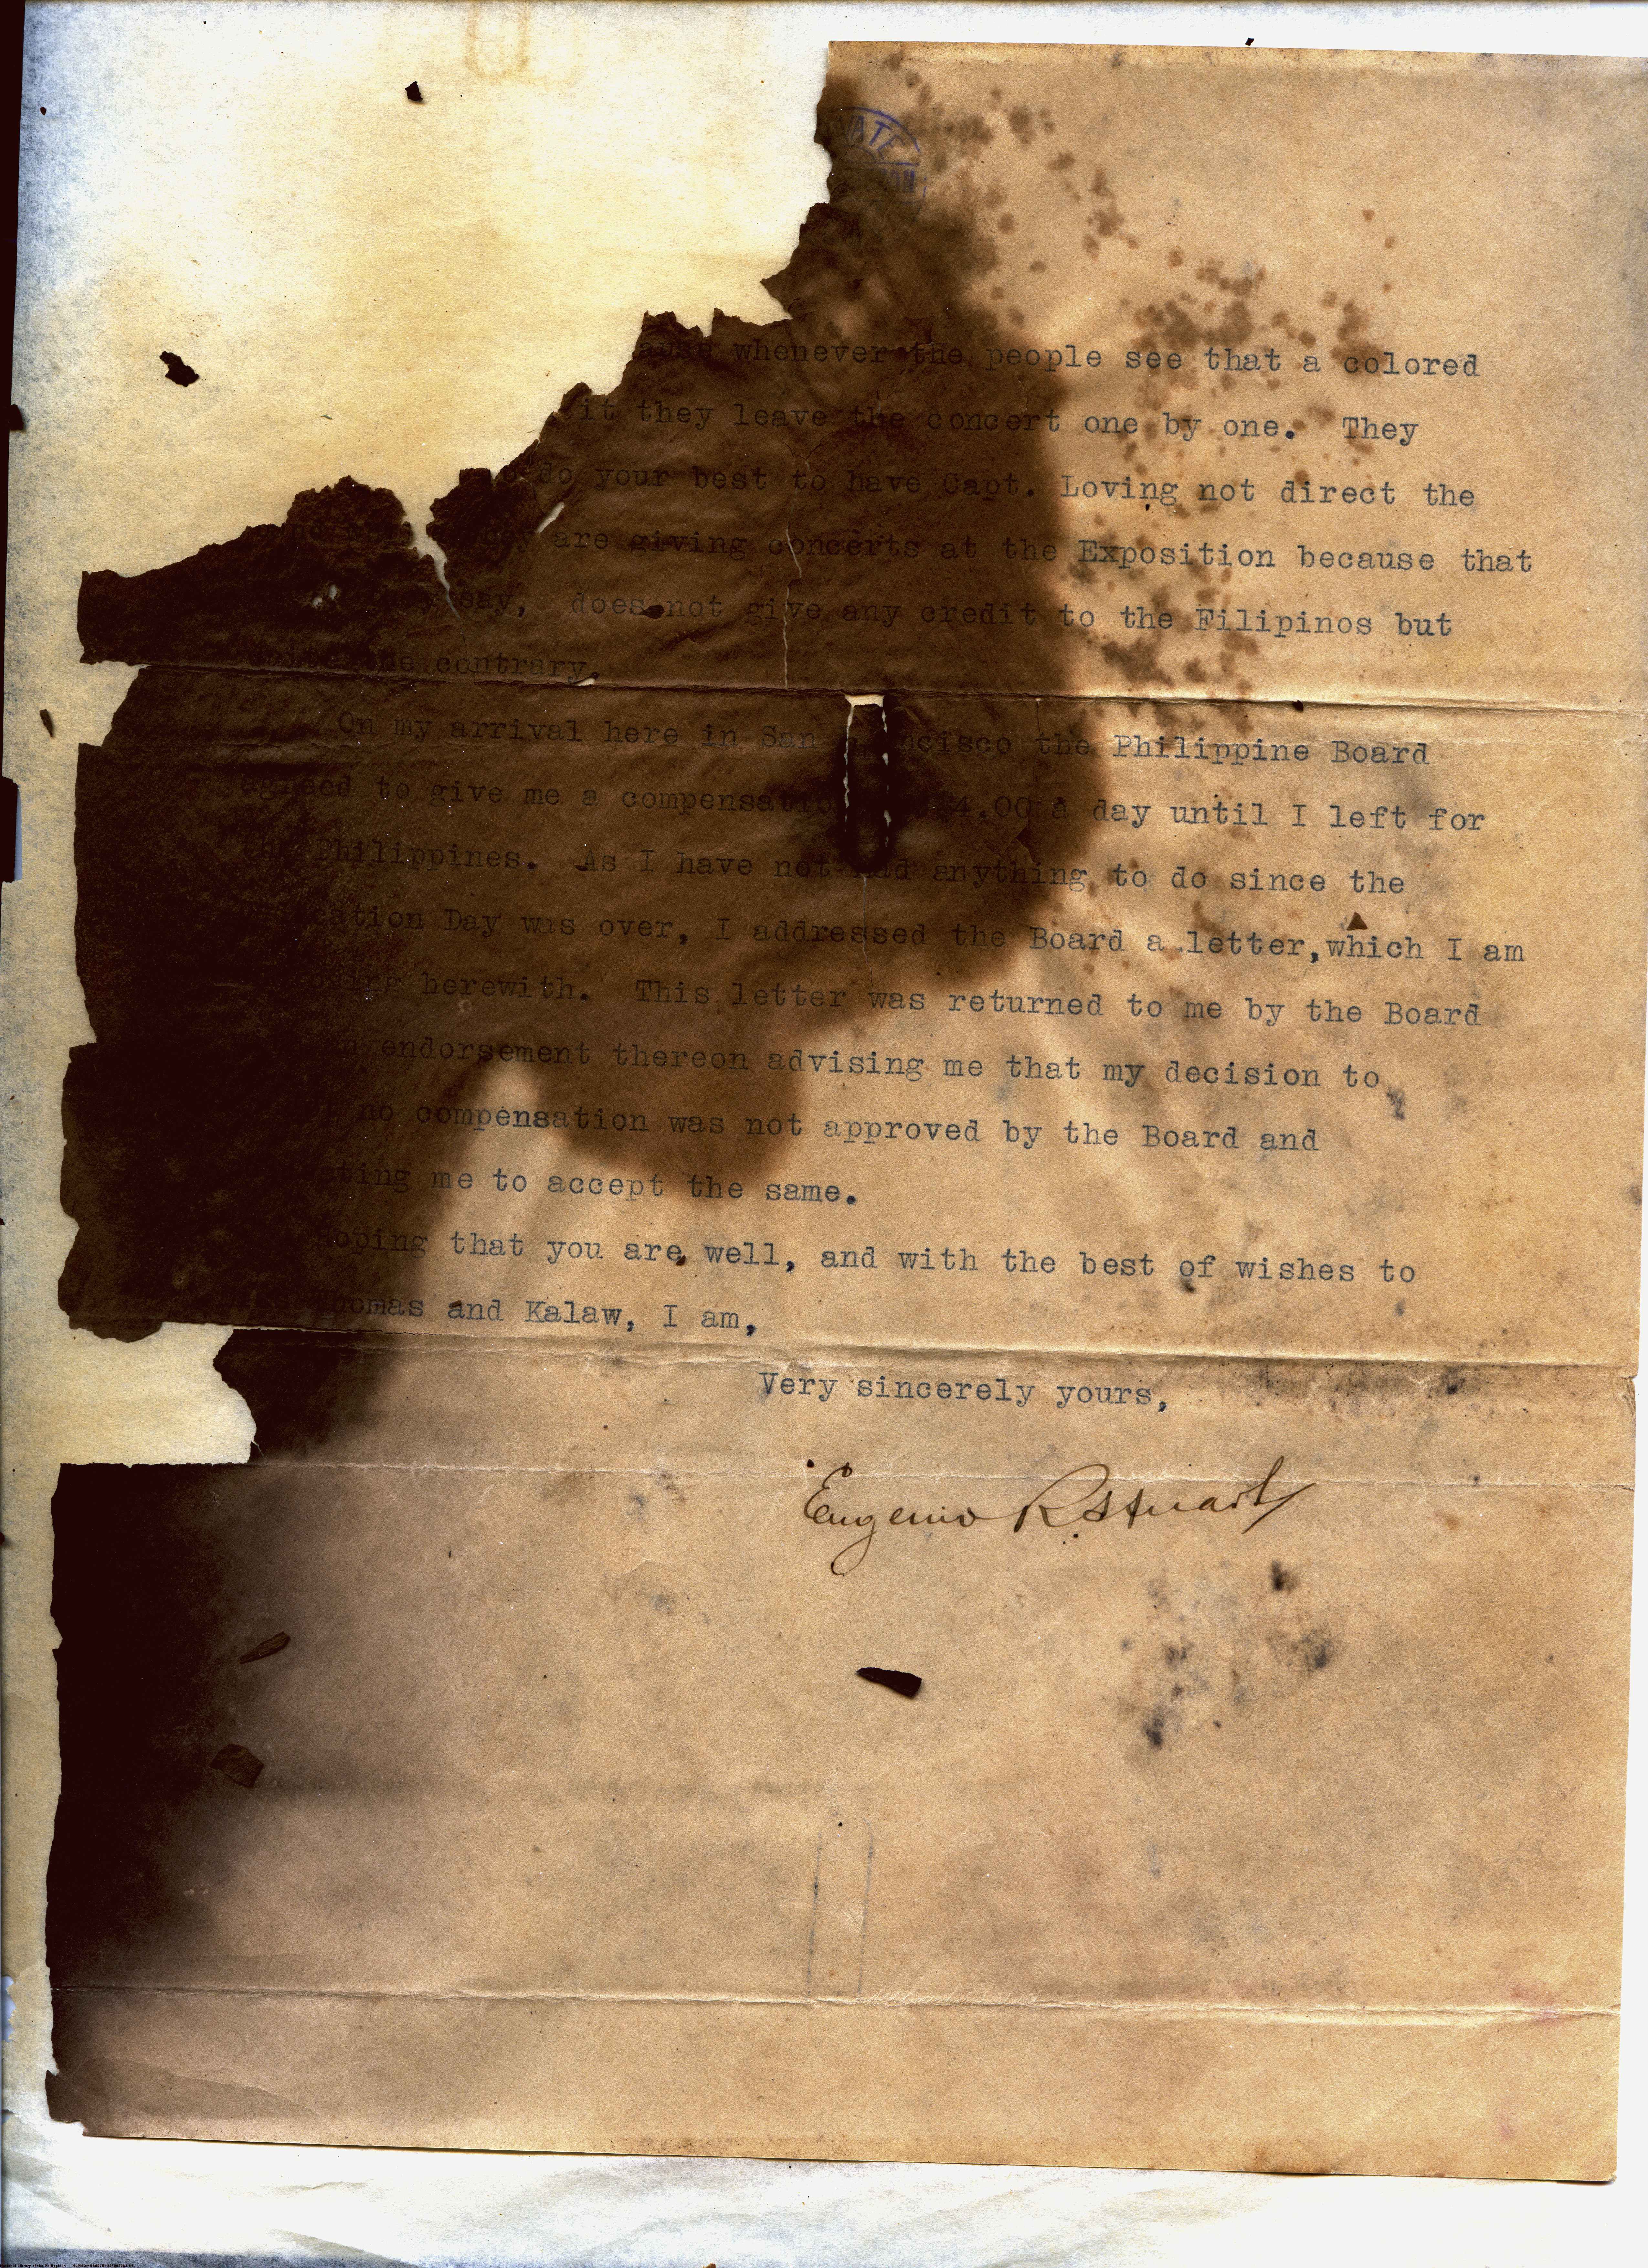 whenever the people see that a colored
it they leave the concert one by one. They
do your best to have Capt. Loving not direct the
are giving concerts at the Exposition because that
say, does not give any credit to the Filipinos but
the contrary.
On my arrival here in San the Philippine Board
agreed to give me a compensation 4.00 a day until I left for
the Philippines. As I have not had anything to do since the
Day was over, I addressed the Board a letter, which I am
herewith. This letter was returned to me by the Board
endorsement thereon advising me that my decision to
no compensation was not approved by the Board and
me to accept the same.
Hoping that you are well, and with the best of wishes to
Thomas and Kalaw, I am,
Very sincerely yours,
Eugenio